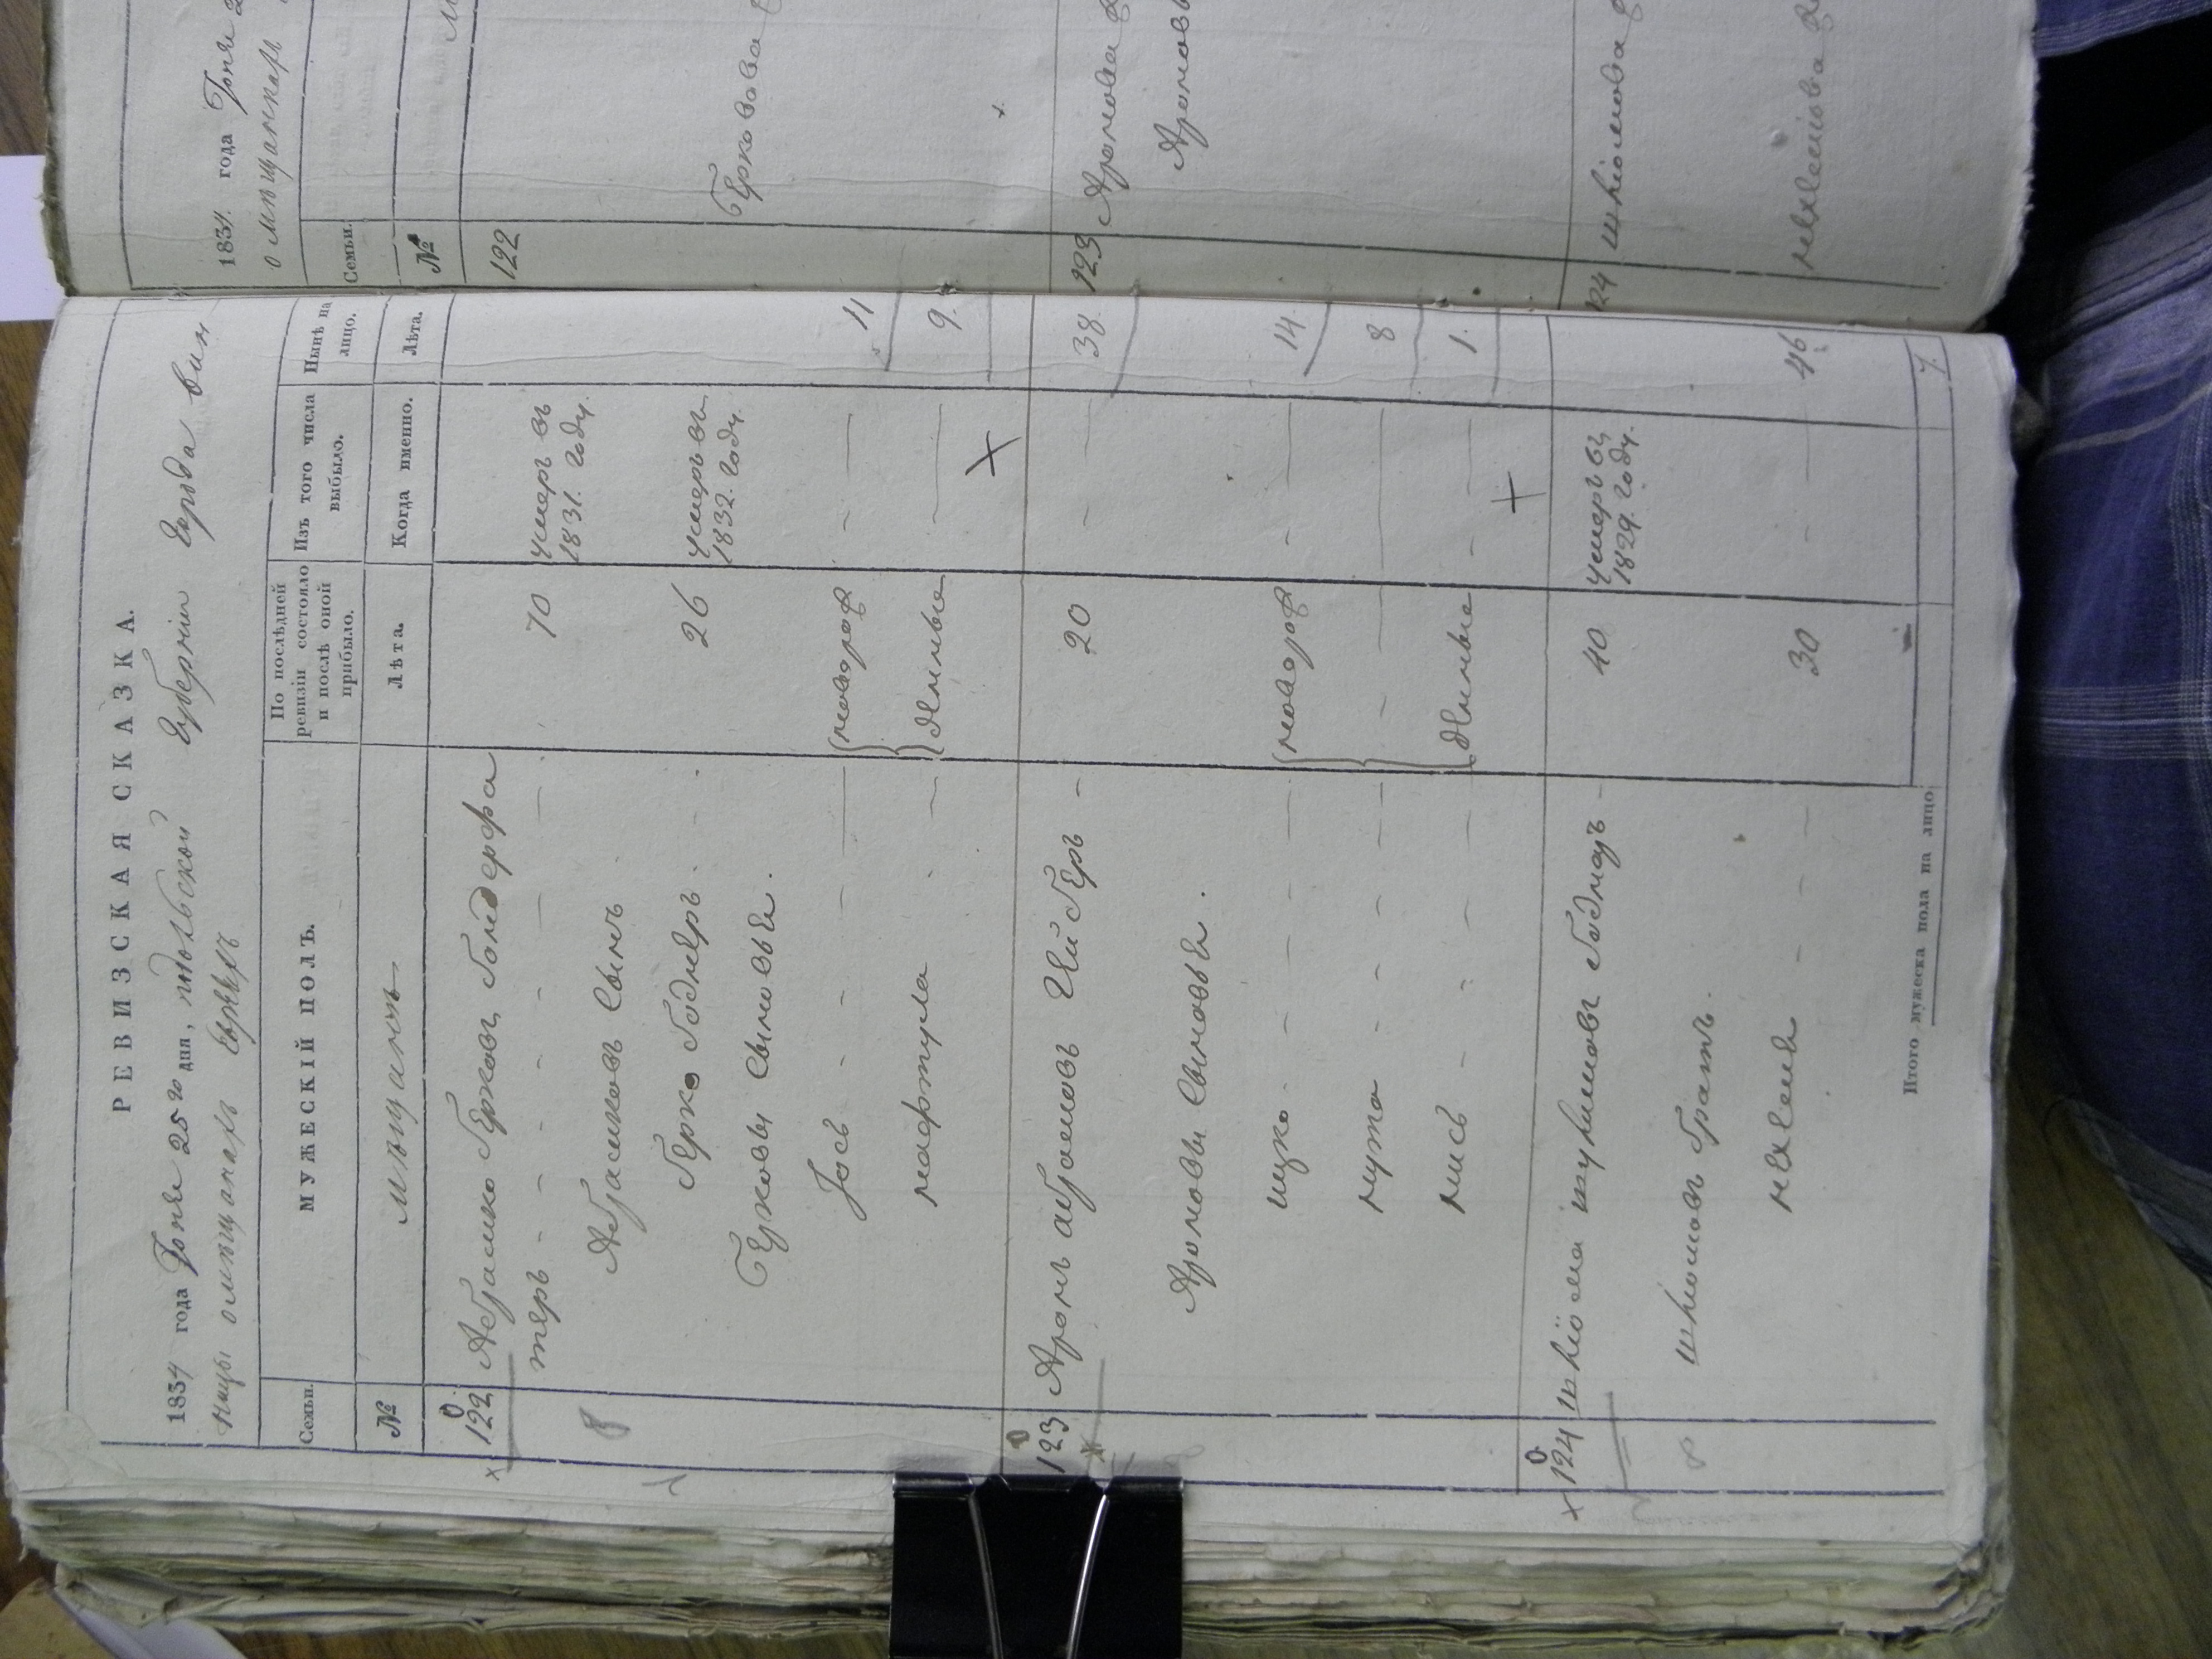 РЕВИЗСКАЯ СКАЗКА.
1834 года Іюня 25го дня, подольской Губерніи Города вин
ницы о мѣщанахъ Евреяхъ
Семьи.
МУЖЕСКІЙ ПОЛЪ.
По послѣдней ревизіи состояло и послѣ оной прибыло.
Изъ того числа выбыло.
Нынѣ на лицо.
№
мѣщанъ
Лѣта.
Когда именно.
Лѣта.
122 Абрамко Берковъ
теръ - - - - - 70 умеръ въ 1831. году.
Абрамковъ Сынъ
Берко Боднеръ - 26 умеръ въ 1832. году.
Берковы Сыновья.
Іось - - - новорож - 11
мафтула - - денные - 9.
123 Аронъ абрамовъ - 20 - 38.
Ароновы Сыновья.
ицко - - - новорож - 14.
мужа - - - - 8
мись - - - денные - 1.
124 шліома 40 умеръ въ 1829. году.
шліомовъ братъ.
нехемя - - - 30 - 46
Итого мужеска пола на лицо
7.
1834 года Іюня 2
о мѣщанахъ
Семьи.
№
122
Беркова
123 Аронова
Аронов
124 шліомова
нехеміова